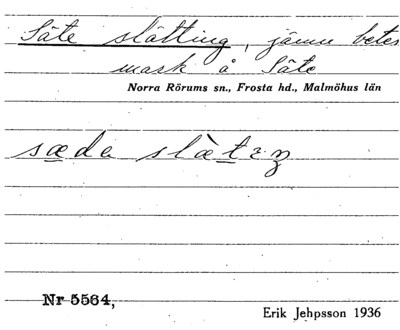 Säte slätting, jämn betes
mark å Säte
Norra Rörums sn., Frosta hd., Malmöhus län
sæda slætɪŋ
Nr 5564,
Erik Jehpsson 1936